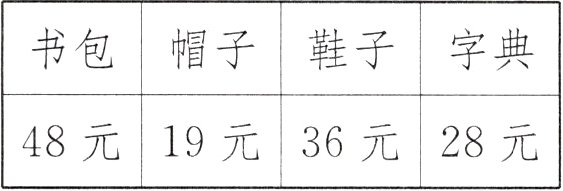 书包 帽子 鞋子 字典
48元 19元 36元 28元